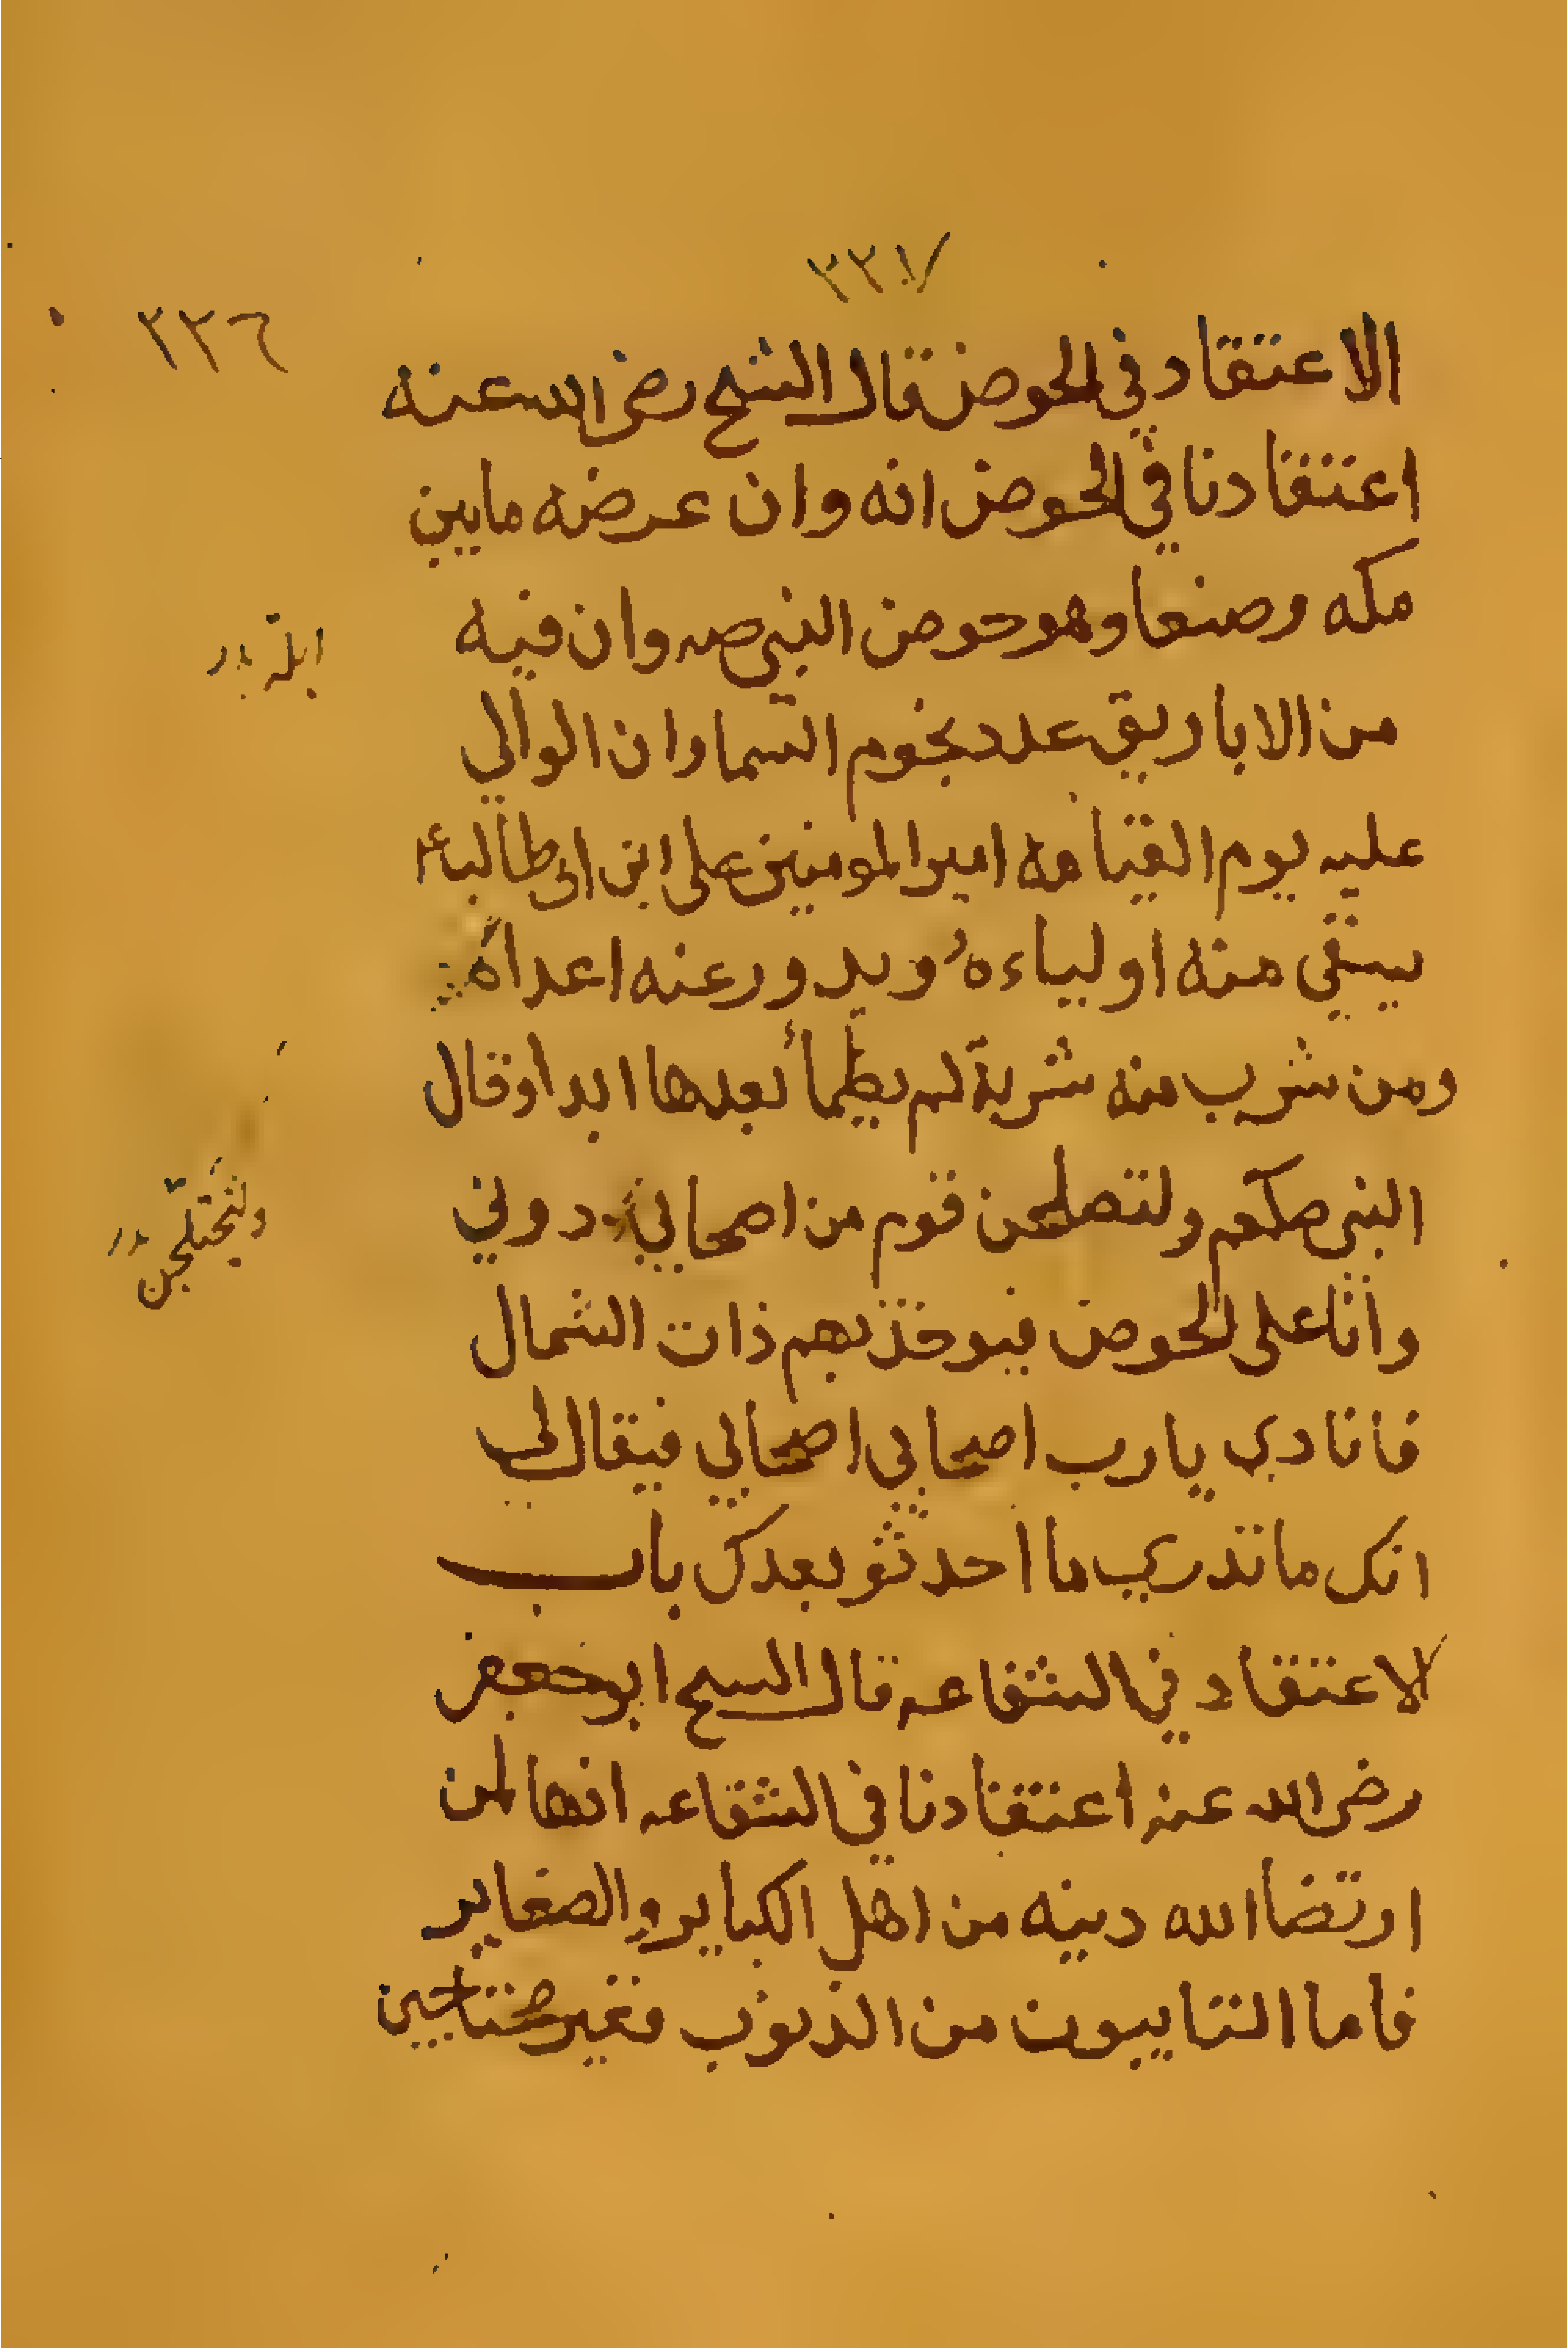 ٣٣٧
٣٣٦
الاعتقاد في الحوض قال الشيخ رضي الله عنه
اعتقادنا في الحوض انه وان عرضه مابين
مكه وصنعا وهو حوض النبي صه وان فيه
ابلة
من الاباريق عدد نجوم السما وان الوالي
عليه يوم القيامة امير المومنين علي ابن ابي طالب ع
يسقي منه اولياءه ويدور عنه اعداه
ومن شرب منه شربة لم يظمأ بعدها ابدا وقال
النبي صلعم ولتصلحن قوم من اصحابي دوني
وليختلجن
وانا على الحوض فيوخذ بهم ذات الشمال
فانادي يارب اصحابي اصحابي فيقال لي
انك ماتدري ما احدثو بعدك باب
الاعتقاد في الشفاعه قال الشيخ ابو جعفر
رضي الله عنه اعتقادنا في الشفاعه انها لمن
ارتضا الله دينه من اهل الكباير والصغاير
فاما التايبون من الذنوب فغير محتاجين